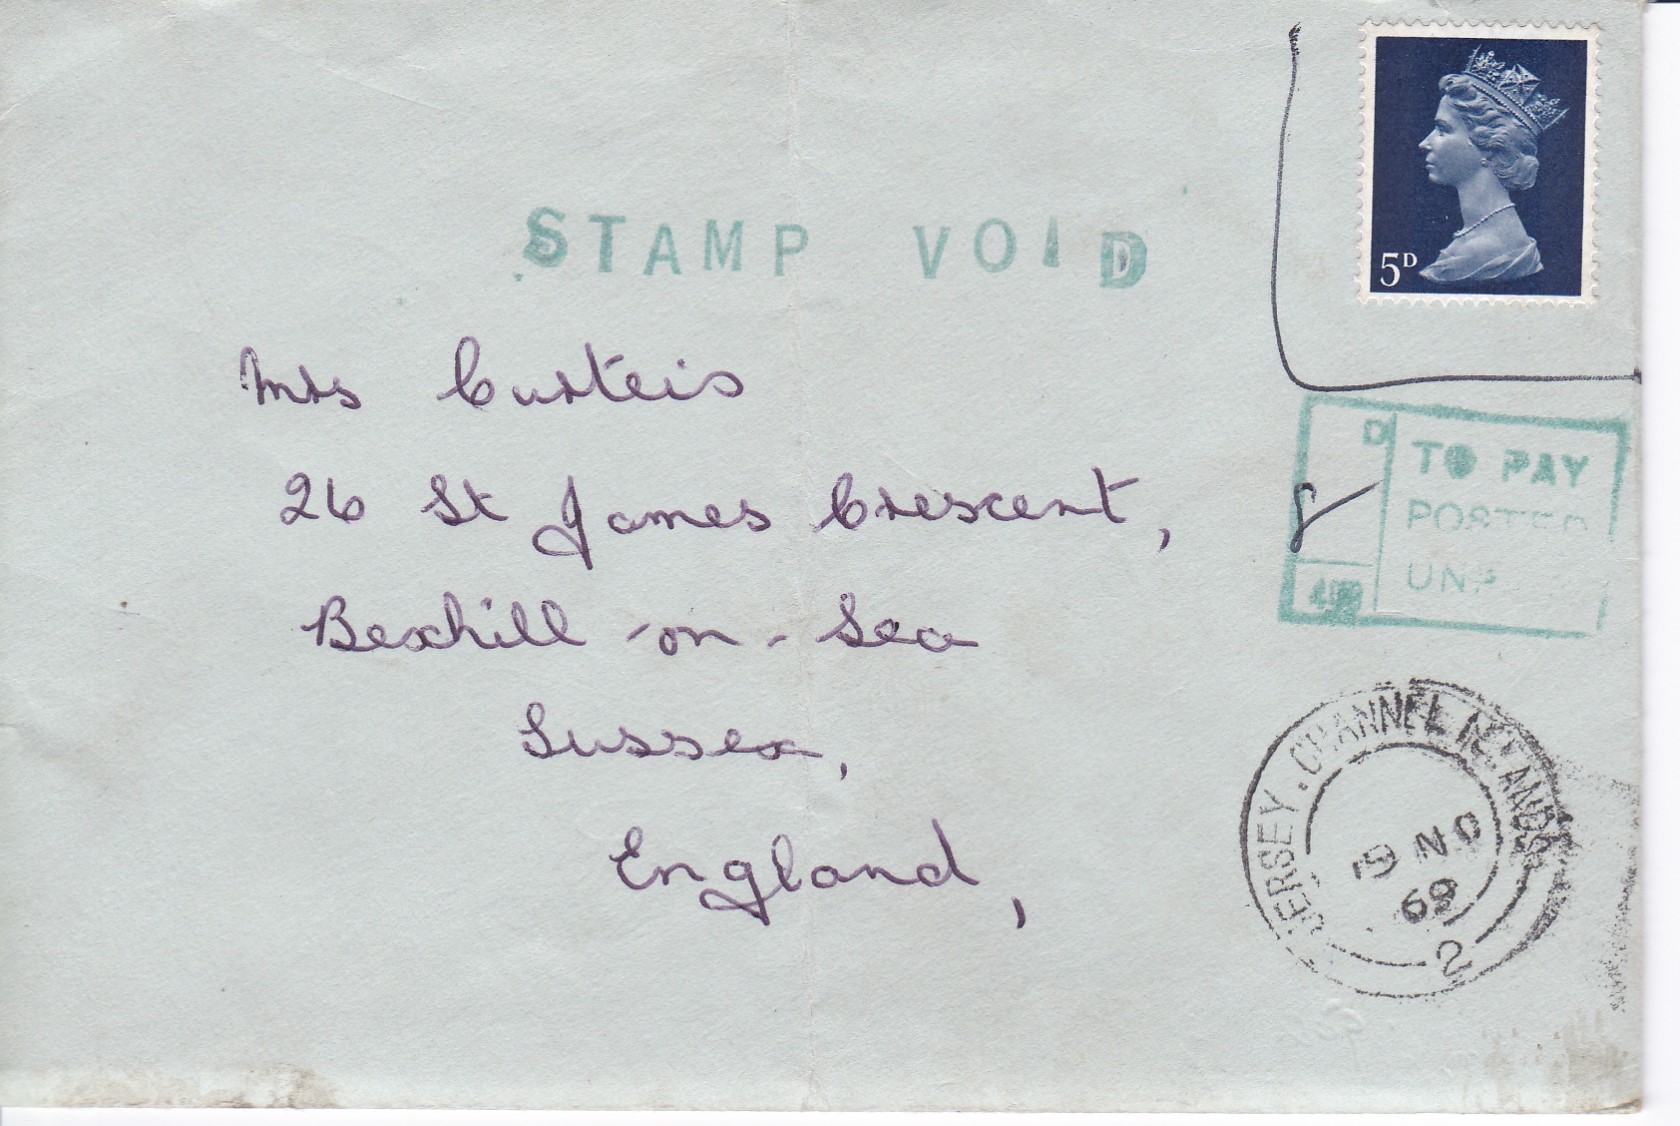 5D
STAMP VOID
Mrs Curteis
26 St James Crescent,
Bexhill-on-Sea
Sussex,
England,
D
8
TO PAY
POSTED
JERSEY. CHANNEL ISLANDS
19 NO
69
2